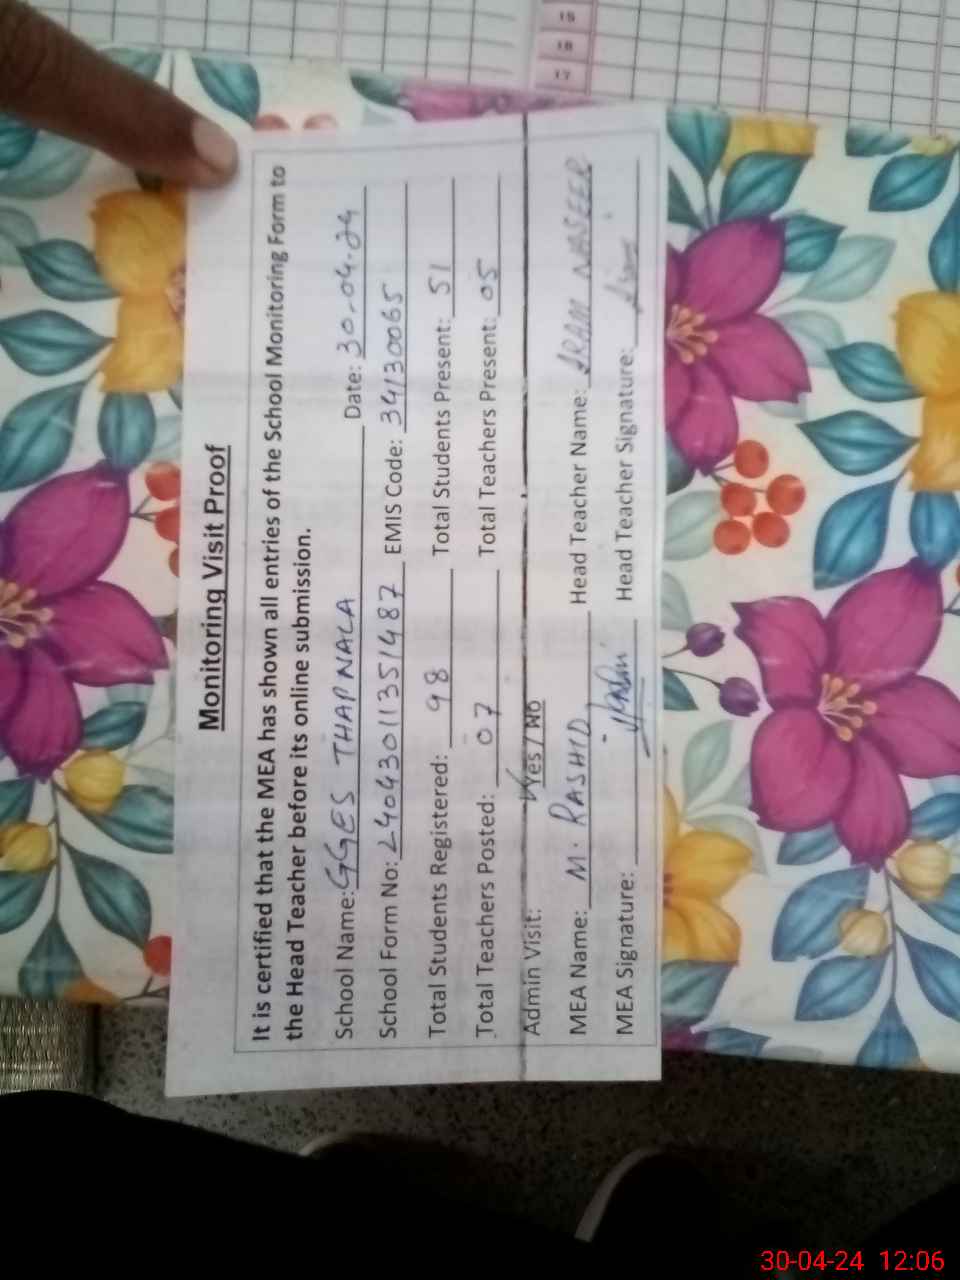 15
16
17
Monitoring Visit Proof
It is certified that the MEA has shown all entries of the School Monitoring Form to
the Head Teacher before its online submission.
School Name: GGES THAPNALA Date: 30-04-24
School Form No: 24043011351487 EMIS Code: 34130065
Total Students Registered: 98 Total Students Present: 51
Total Teachers Posted: 07 Total Teachers Present: 05
Admin Visit: Yes / No
MEA Name: M. RASHID Head Teacher Name: IRAM NASEER
MEA Signature: Head Teacher Signature:
30-04-24 12:06